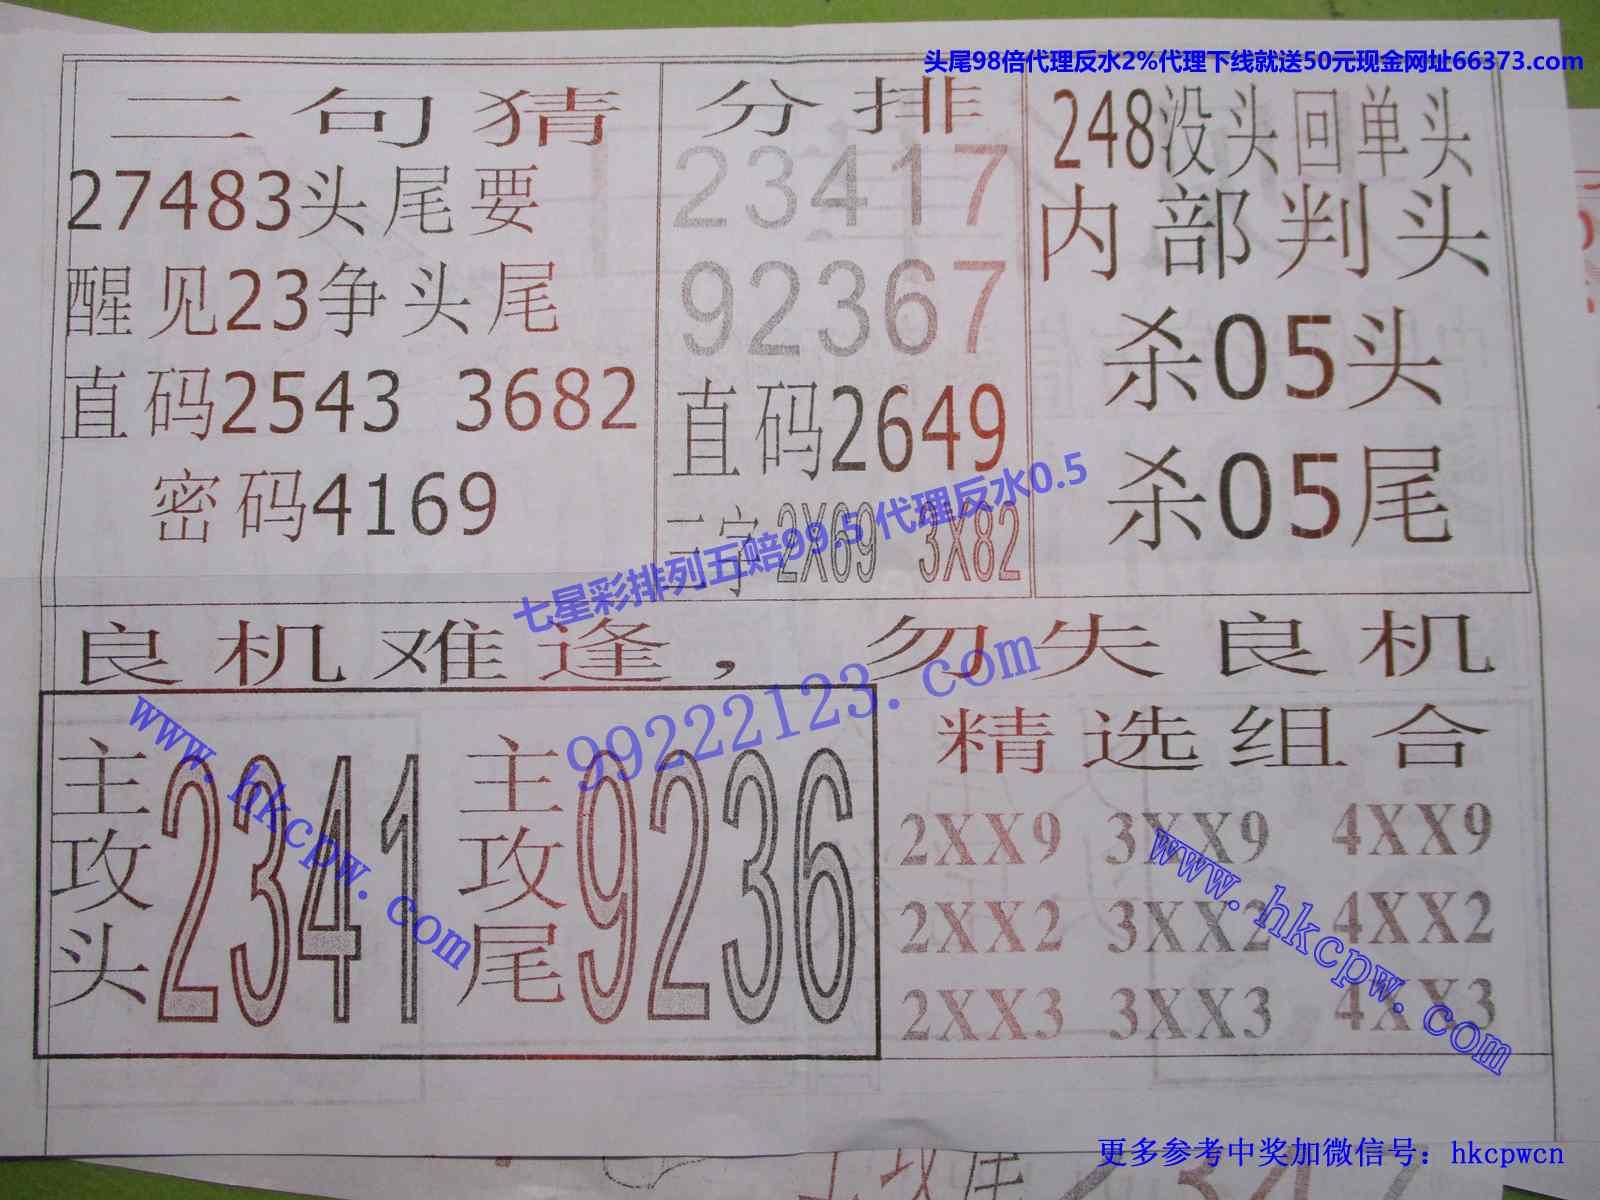 头尾98倍代理反水2%代理下线就送50元现金网址66373.com
二句猜
27483头尾要
醒见23争头尾
直码2543 3682
密码4169
分排
23417
92367
直码2649
三字2X69 3X82
248没头回单头
内部判头
杀05头
杀05尾
七星彩排列五赔99.5代理反水0.5
良机难逢，勿失良机
99222123.com
主攻头2341
主攻尾9236
www.hkcpw.com
精选组合
2XX9 3XX9 4XX9
2XX2 3XX2 4XX2
2XX3 3XX3 4XX3
www.hkcpw.com
更多参考中奖加微信号：hkcpwcn